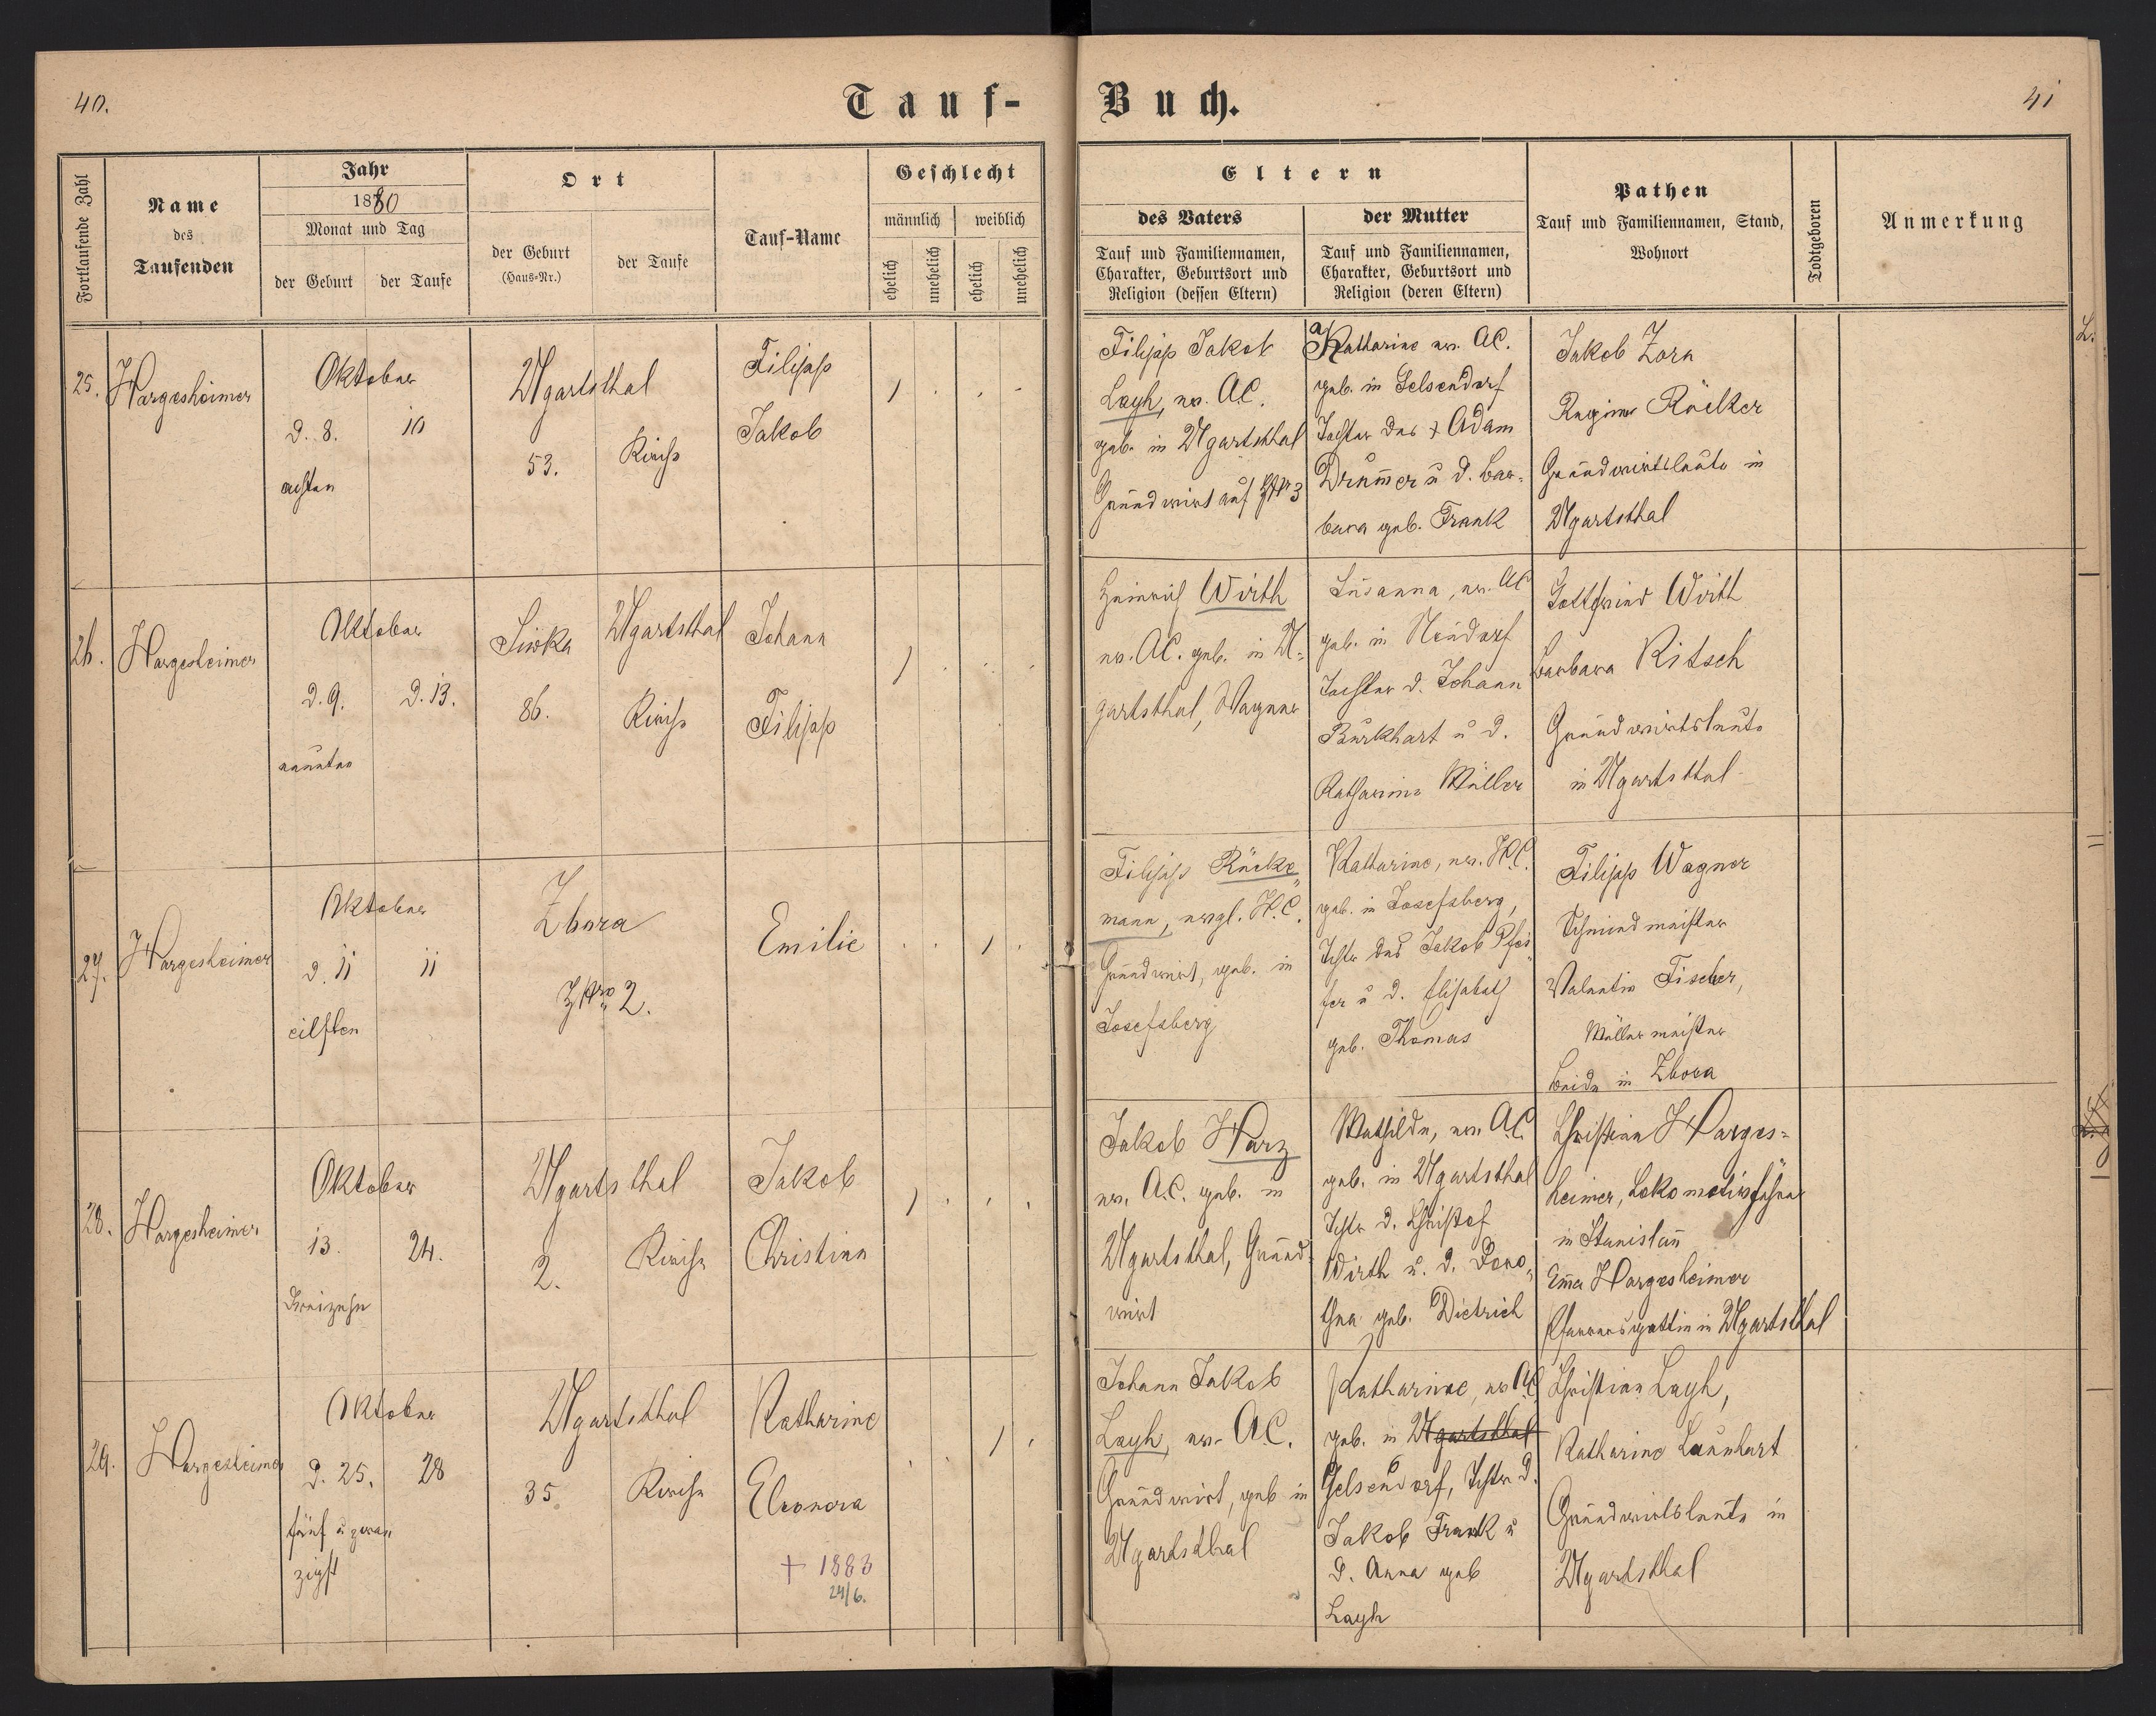 40.
Tauf-
Fortlaufende Zahl
Name
des
Taufenden
Jahr
1880
Monat und Tag
der Geburt
der Taufe
Ort
der Geburt
(Haus-Nr.)
der Taufe
Tauf-Name
Geschlecht
männlich
weiblich
ehelich
unehelich
ehelich
unehelich
25.
Hargesheimer
Oktober
d. 8.
10
achten
Ugartsthal
53.
Kirche
Filipp
Jakob
26.
Hargesheimer
Oktober
d. 9.
d. 13.
neunten
Siwka
86.
Ugartsthal
Kirche
Johann
Filipp
27.
Hargesheimer
Oktober
d. 11
11
eilften
Zbora
HNro 2.
Emilie
28.
Hargesheimer
Oktober
13.
24.
Dreizehn
Ugartsthal
2.
Kirche
Jakob
Christian
29.
Hargesheimer
Oktober
d. 25.
28
fünf u zwan
zigst
Ugartsthal
35.
Kirche
Katharine
Eleonora
+ 1883
24/6.
Buch.
41
Eltern
des Vaters
Tauf und Familiennamen,
Charakter, Geburtsort und
Religion (dessen Eltern)
der Mutter
Tauf und Familiennamen,
Charakter, Geburtsort und
Religion (deren Eltern)
Pathen
Tauf und Familiennamen, Stand,
Wohnort
Todtgeboren
Anmerkung
Filipp Jakob
Layh, ev. A.C.
geb. in Ugartsthal
Grundwirt auf
Katharine ev. A.C.
geb. in Gelsendorf
Tochter des + Adam
Drum̄er u d. Bar-
bara geb. Frank
Jakob Zorn
Regine Röcker
Grundwirtsleute in
Ugartsthal
Heinrich Wirth
ev. A.C. geb. in U-
gartsthal, Wagner
Susanna, ev. AC
geb. in Neudorf
Tochter d. Johann
Burkhart u d.
Katharine Müller
Gottfried Wirth
Barbara Ritsch
Grundwirtsleute
in Ugartsthal
Filipp Rücke
mann, evgl. H.C.
Grundwirt, geb. in
Josefsberg
Katharine, ev. H.C.
geb. in Josefsberg,
Tchtr des Jakob Pfei
fer u d. Elisabeth
geb. Thomas
Filipp Wagner
Schmiedmeister
Valentin Fischer,
Müllermeister
beide in Zbora
Jakob Harz
ev. A.C. geb. in
Ugartsthal, Grund
wirt
Mathilde, ev. A.C.
geb. in Ugartsthal
Tchtr d. Christof
Wirth u. d. Doro
thea geb. Dietrich
Christian Harges-
heimer, Lokomotivführer
in Stanislau
Em̄a Hargesheimer
Pfarrersgattin in Ugartsthal
Johann Jakob
Layh, ev. A.C.
Grundwirt, geb in
Ugartsthal
Katharine, ev AC
geb. in Ugartsthal
Gelsendorf, Tchtr d.
Jakob Frank u
d. Anna geb
Layh
Christian Layh,
Katharine Launhart
Grundwirtsleute in
Ugartsthal